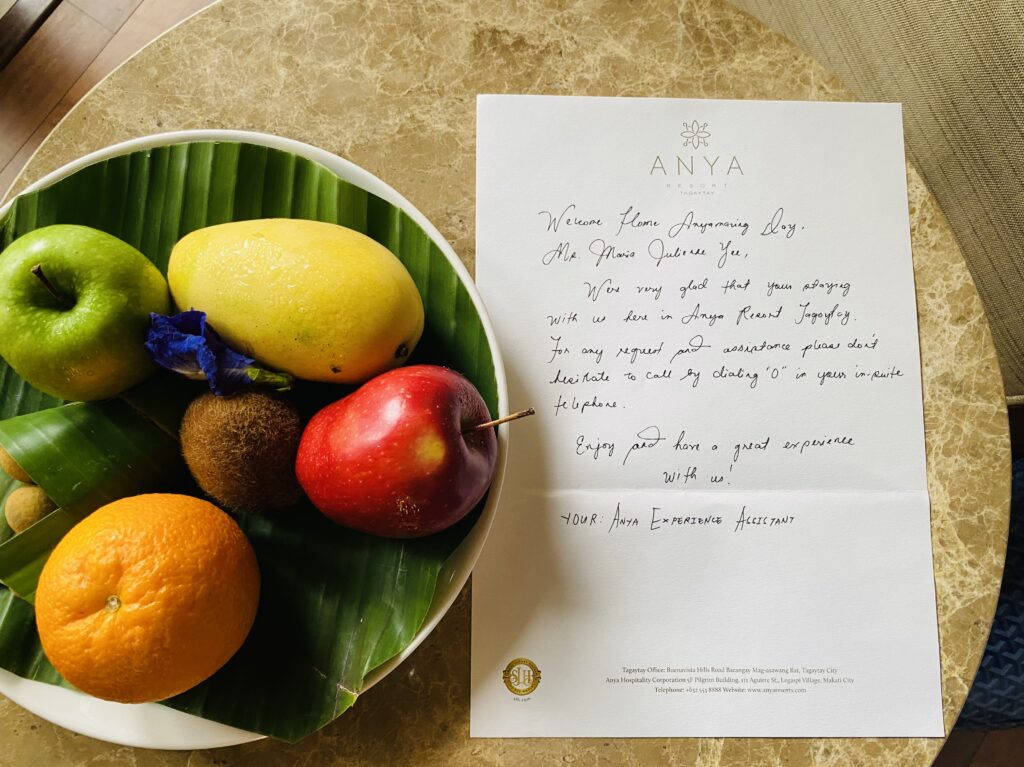 ANYA
RESORT
TAGAYTAY
Welcome Home Anyamazing Day,
Ms. Maria Julienne Yee,
We're very glad that your staying
with us here in Anya Resort Tagaytay.
For any request and assistance please don't
hesitate to call by dialing "0" in your in-suite
telephone.
Enjoy and have a great experience
with us!
YOUR: ANYA EXPERIENCE ASSISTANT
SLH
Tagaytay Office: Buenavista Hills Road Barangay Mag-asawang Ilat, Tagaytay City
Anya Hospitality Corporation 5F Pilgrim Building, 111 Aguirre St., Legaspi Village, Makati City
Telephone: +632 553 8888 Website: www.anyaresorts.com